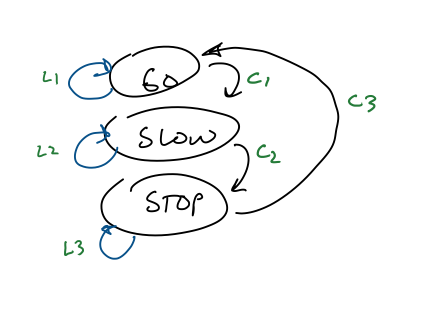 L1
GO
C1
C3
L2
SLOW
C2
STOP
L3